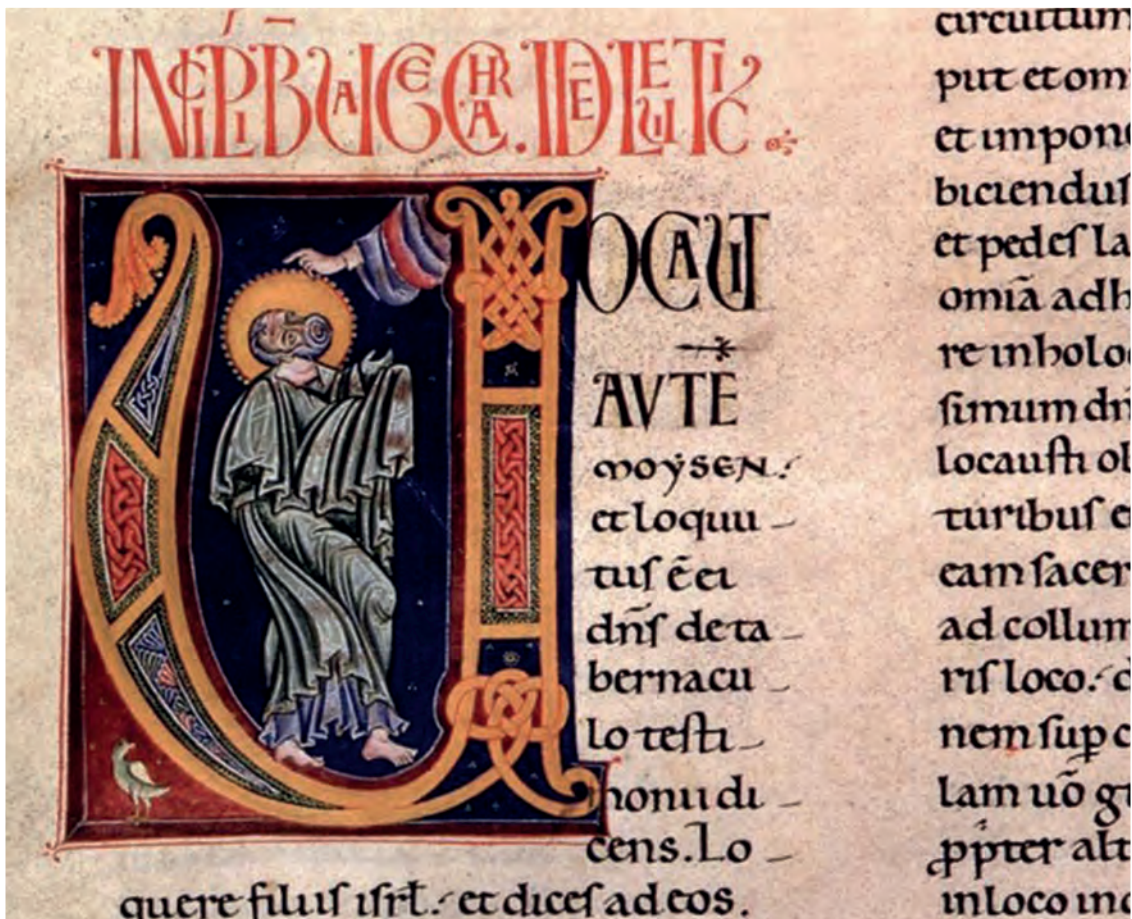 INCIPI B UAIECCHRA. ID Ē LEUITIC.
UOCAUIT
AVTĒ
MOYSEN.
et loquu
tus ē ei
dn̄s de ta
bernacu
lo testi
monii di
cens. Lo
quere filiis isrł. et dices ad eos.
circuitum
put et om
et impon
biciendus
et pedes la
omīa adh
re in holo
simum dn
locausti ol
turibus e
eam sacer
ad collum
ris loco. c
nem sup c
lam uō gu
ppter alt
in loco inc